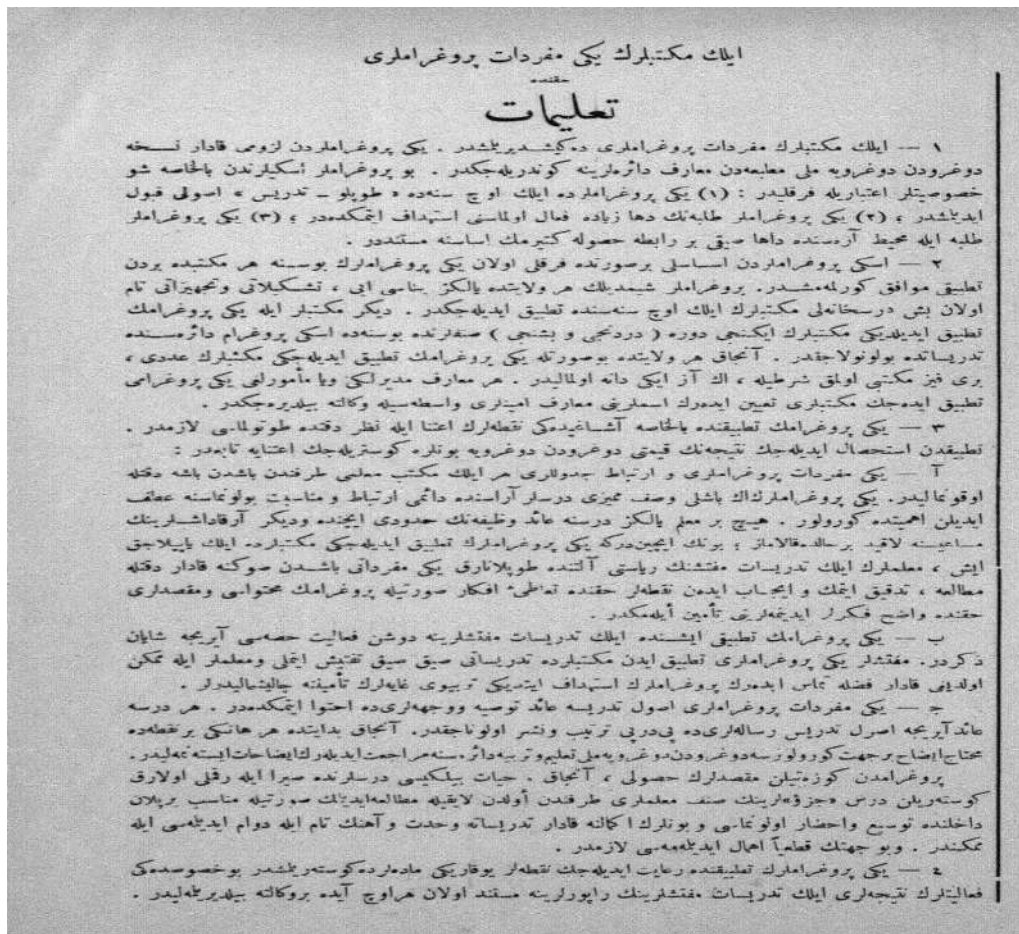 ايلك مكتبلرك يكى مفردات پروغراملرى
حقنده
تعليمات
١ — ايلك مكتبلرك مفردات پروغراملرى ده‌كيشديريلمشدر . يكى پروغراملردن لزومى قادار نسخه
دوغرودن دوغرويه ملى مطبعه‌دن معارف دائره‌لرينه كوندريله‌جكدر . بو پروغراملر اسكيلرندن بالخاصه شو
خصوصيتلر اعتباريله فرقليدر : (١) يكى پروغراملرده ايلك اوچ سنه‌ده « طوپلو ـ تدريس » اصولى قبول
ايديلمشدر ؛ (٢) يكى پروغراملر طلبه‌نك دها زياده فعال اولماسنى استهداف ايتمكده‌در ؛ (٣) يكى پروغراملر
طلبه ايله محيط آره‌سنده داها صيقى بر رابطه حصوله كتيرمك اساسنه مستنددر .
٢ — اسكى پروغراملردن اساسلى برصورتده فرقلى اولان يكى پروغراملرك بوسنه هر مكتبده بردن
تطبيقى موافق كورلمه‌مشدر. پروغراملر شيمديلك هر ولايتده يالكز بناسى ايى ، تشكيلاتى وتجهيزاتى تام
اولان بش درسخانه‌لى مكتبلرك ايلك اوچ سنه‌سنده تطبيق ايديله‌جكدر . ديكر مكتبلر ايله يكى پروغرامك
تطبيق ايديلديكى مكتبلرك ايكنجى دوره ( دردنجى و بشنجى ) صنفلرنده بوسنه‌ده اسكى پروغرام دائره‌سنده
تدريساتده بولونولاجقدر . آنجاق هر ولايتده بوصورتله يكى پروغرامك تطبيق ايديله‌جكى مكتبلرك عددى ،
برى قيز مكتبى اولمق شرطيله ، اك آز ايكى دانه اولماليدر . هر معارف مديرلكى ويا مأمورلغى يكى پروغرامى
تطبيق ايده‌جك مكتبلرى تعيين ايده‌رك اسملرينى معارف امينلرى واسطه‌سيله وكالته بيلديره‌جكدر .
٣ — يكى پروغرامك تطبيقنده بالخاصه آشاغيده‌كى نقطه‌لرك اعتنا ايله نظر دقتده طوتولماسى لازمدر .
تطبيقدن استحصال ايديله‌جك نتيجه‌نك قيمتى دوغرودن دوغرويه بونلره كوستريله‌جك اعتنايه تابعدر :
آ — يكى مفردات پروغراملرى و ارتباط جدوللرى هر ايلك مكتب معلمى طرفندن باشدن باشه دقتله
اوقونماليدر. يكى پروغراملرك‌اك باشلى وصف مميزى درسلر آراسنده دائمى ارتباط و مناسبت بولونماسنه عطف
ايديلن اهميتده كورولور . هيچ بر معلم يالكز درسنه عائد وظيفه‌نك حدودى ايچنده وديكر آرقاداشلرينك
مساعيسنه لاقيد برحالده‌قالاماز ؛ بونك ايچين‌دركه يكى پروغراملرك تطبيق ايديله‌جكى مكتبلرده ايلك ياپيلاجق
ايش ، معلملرك ايلك تدريسات مفتشنك رياستى آلتنده طوپلانارق يكى مفرداتى باشدن صوكنه قادار دقتله
مطالعه ، تدقيق ايتمك و ايجاب ايدن نقطه‌لر حقنده تعاطئ افكار صورتيله پروغرامك محتواسى ومقصدلرى
حقنده واضح فكرلر ايدينمه‌لرينى تأمين ايله‌مكدر .
ب — يكى پروغرامك تطبيقى ايشنده ايلك تدريسات مفتشلرينه دوشن فعاليت حصه‌سى آيريجه شايان
ذكردر. مفتشلر يكى پروغراملرى تطبيق ايدن مكتبلرده تدريساتى صيق صيق تفتيش ايتملى ومعلملر ايله ممكن
اولديغى قادار فضله تماس ايده‌رك پروغراملرك استهداف ايتديكى تربيوى غايه‌لرك تأميننه چاليشماليدرلر .
ج — يكى مفردات پروغراملرى اصول تدريسه عائد توصيه ووجهه‌لرى‌ده احتوا ايتمكده‌در . هر درسه
عائدآيريجه اصول تدريس رساله‌لرى‌ده پى‌درپى ترتيب ونشر اولوناجقدر. آنجاق بدايتده هر هانكى برنقطه‌ده
محتاج‌ايضاح برجهت‌كورولورسه‌دوغرودن‌دوغرويه‌ملى‌تعليم‌وتربيه‌دائره‌سنه‌مراجعت‌ايديله‌رك‌ايضاحات‌ايسته‌نمه‌ليدر.
پروغرامدن كوزه‌تيلن مقصدلرك حصولى ، آنجاق . حيات بيلكيسى درسلرنده صيرا ايله رقملى اولارق
كوسته‌ريلن درس «جزؤ»لرينك صنف معلملرى طرفندن أولدن لايقيله مطالعه‌ايديله‌رك صورتيله مناسب برپلان
داخلنده توسيع واحضار اولونماسى و بونلرك اكمالنه قادار تدريساته وحدت وآهنك تام ايله دوام ايديلمه‌سى ايله
ممكندر . وبو جهتك قطعياً اهمال ايديلمه‌مه‌سى لازمدر .
٤ — يكى پروغراملرك تطبيقنده رعايت ايديله‌جك نقطه‌لر يوقاريكى ماده‌لرده‌كوسته‌ريلمشدر بوخصوصده‌كى
فعاليتلرك نتيجه‌لرى ايلك تدريسات مفتشلرينك راپورلرينه مستند اولان هراوچ آيده بروكالته بيلديريلمه‌ليدر .